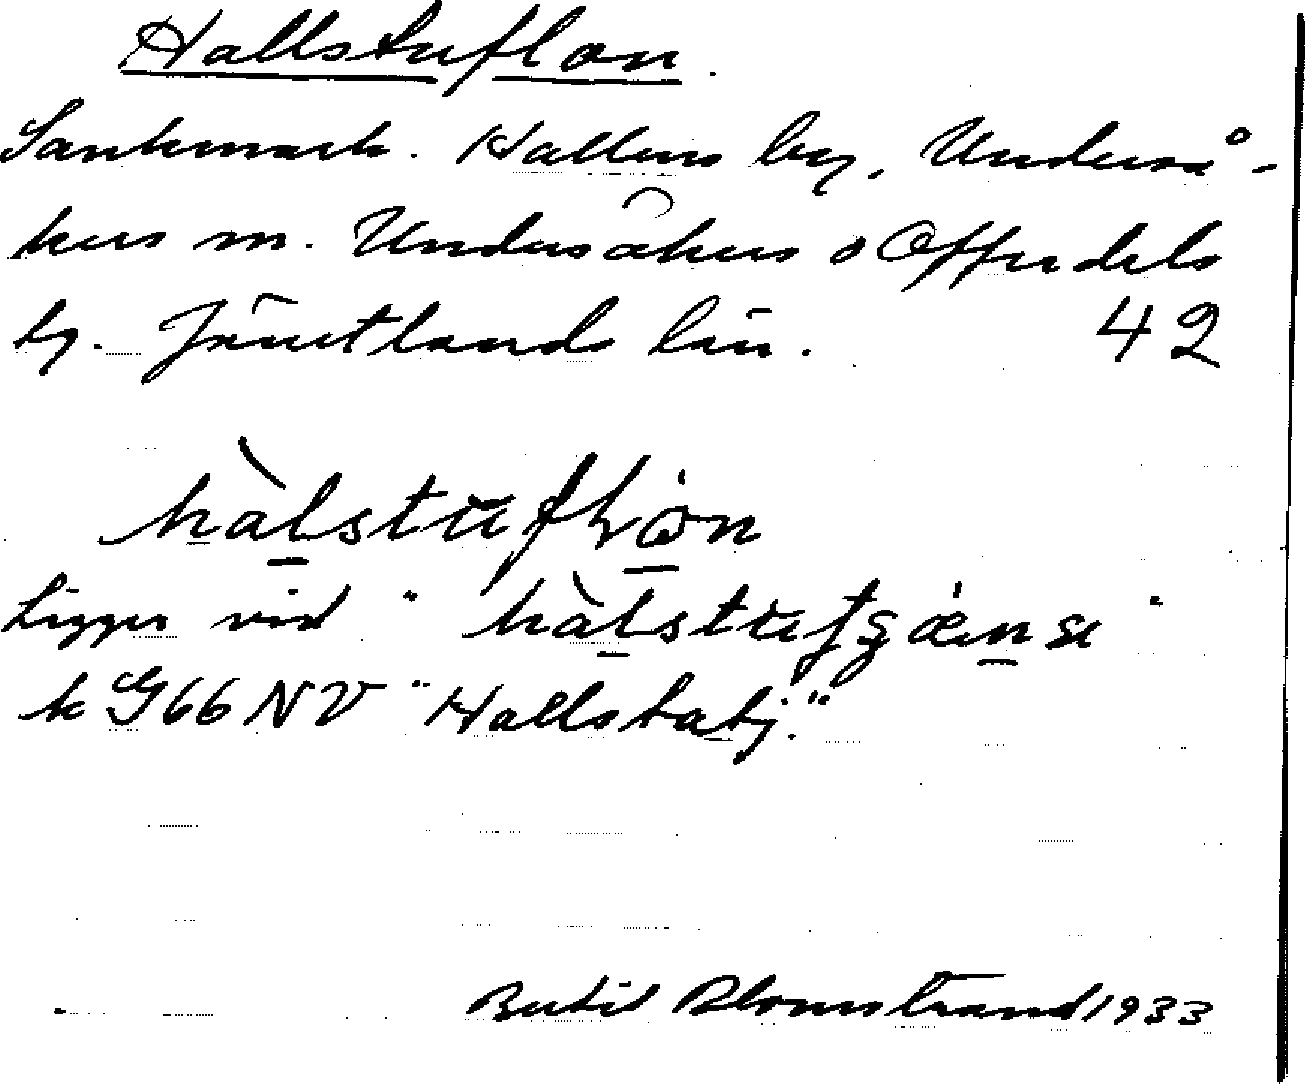 Hallstuflon.
Sankmark. Hallens by, Underså-
kers sn. Undersåkers o Offerdals
tg. Jämtlands län. 42
hàlstuflòn
Ligger vid "hàlstufgænse"
k G66NV "Hallstabj."
Bertil Blomstrand 1933